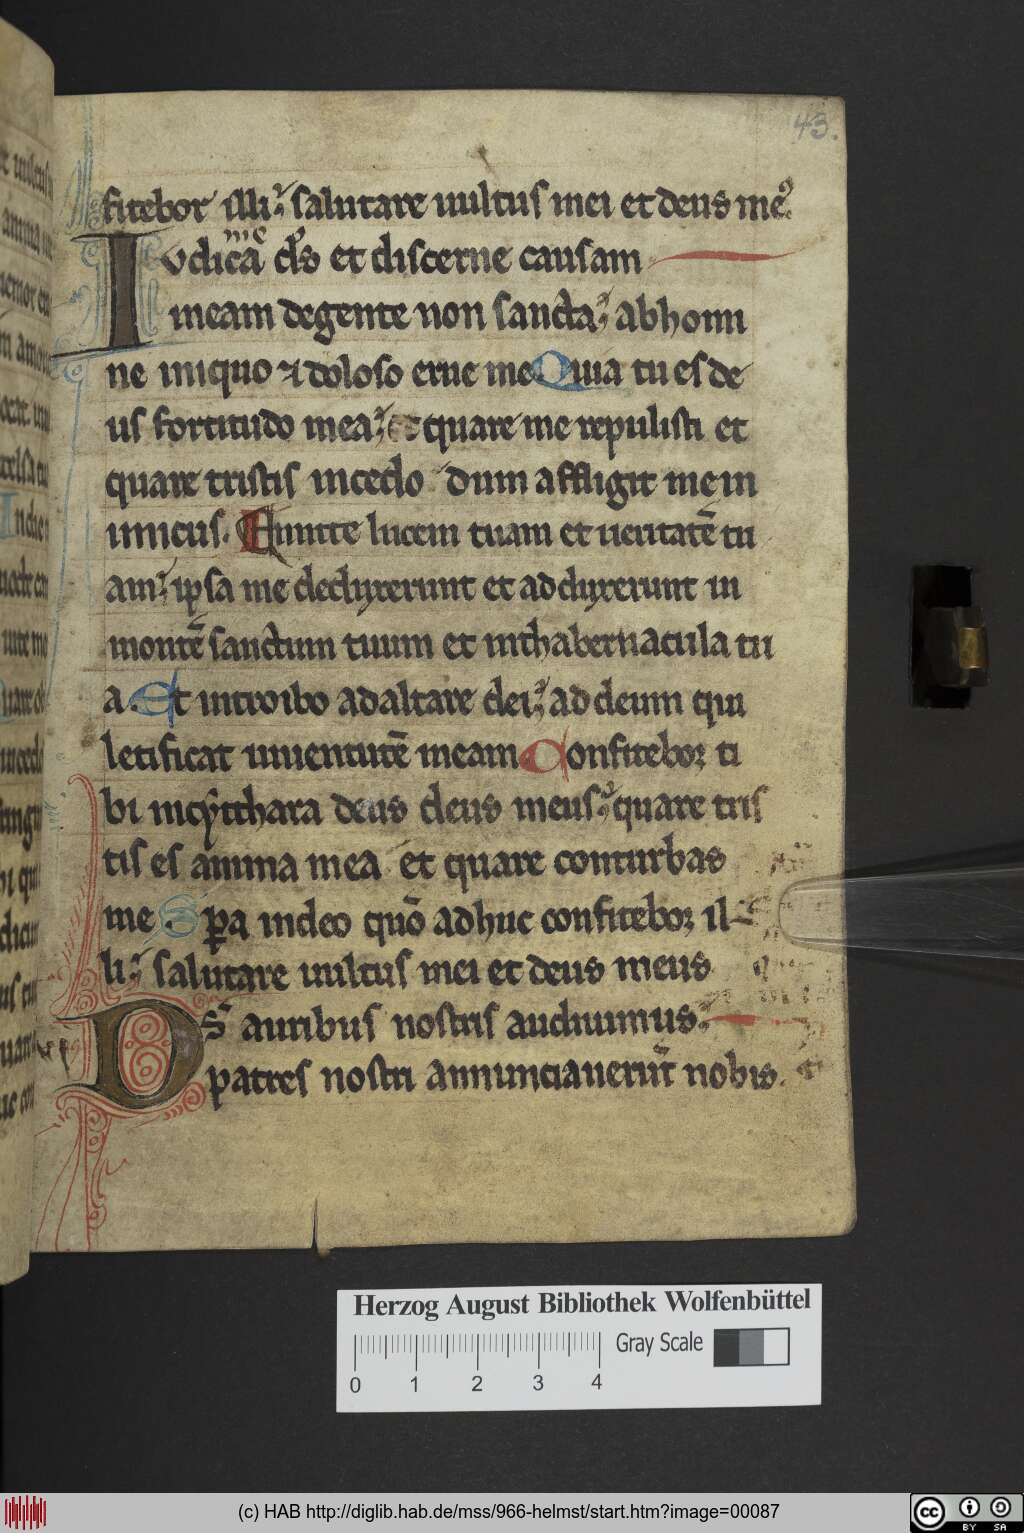 43.
fitebor illi salutare uultus mei et deus me⁹.
Iudica me ds et discerne causam
meam de gente non sancta ab homi
ne iniquo ⁊ doloso erue me Quia tu es de
us fortitudo mea et quare me repulisti et
quare tristis incedo dum affligit me in
imicus. Emitte lucem tuam et ueritatē tu
am ipsa me deduxerunt et adduxerunt in
montē sanctum tuum et in thabernacula tu
a. Et introibo ad altare dei ad deum qui
letificat iuuentutē meam Confitebor ti
bi in cythara deus deus meus quare tris
tis es anima mea et quare conturbas
me. Spera in deo quō adhuc confitebor il
li salutare uultus mei et deus meus
Ds auribus nostris audiuimus.
patres nostri annunciauerūt nobis.
Herzog August Bibliothek Wolfenbüttel
Gray Scale
0 1 2 3 4
(c) HAB http://diglib.hab.de/mss/966-helmst/start.htm?image=00087
cc BY SA